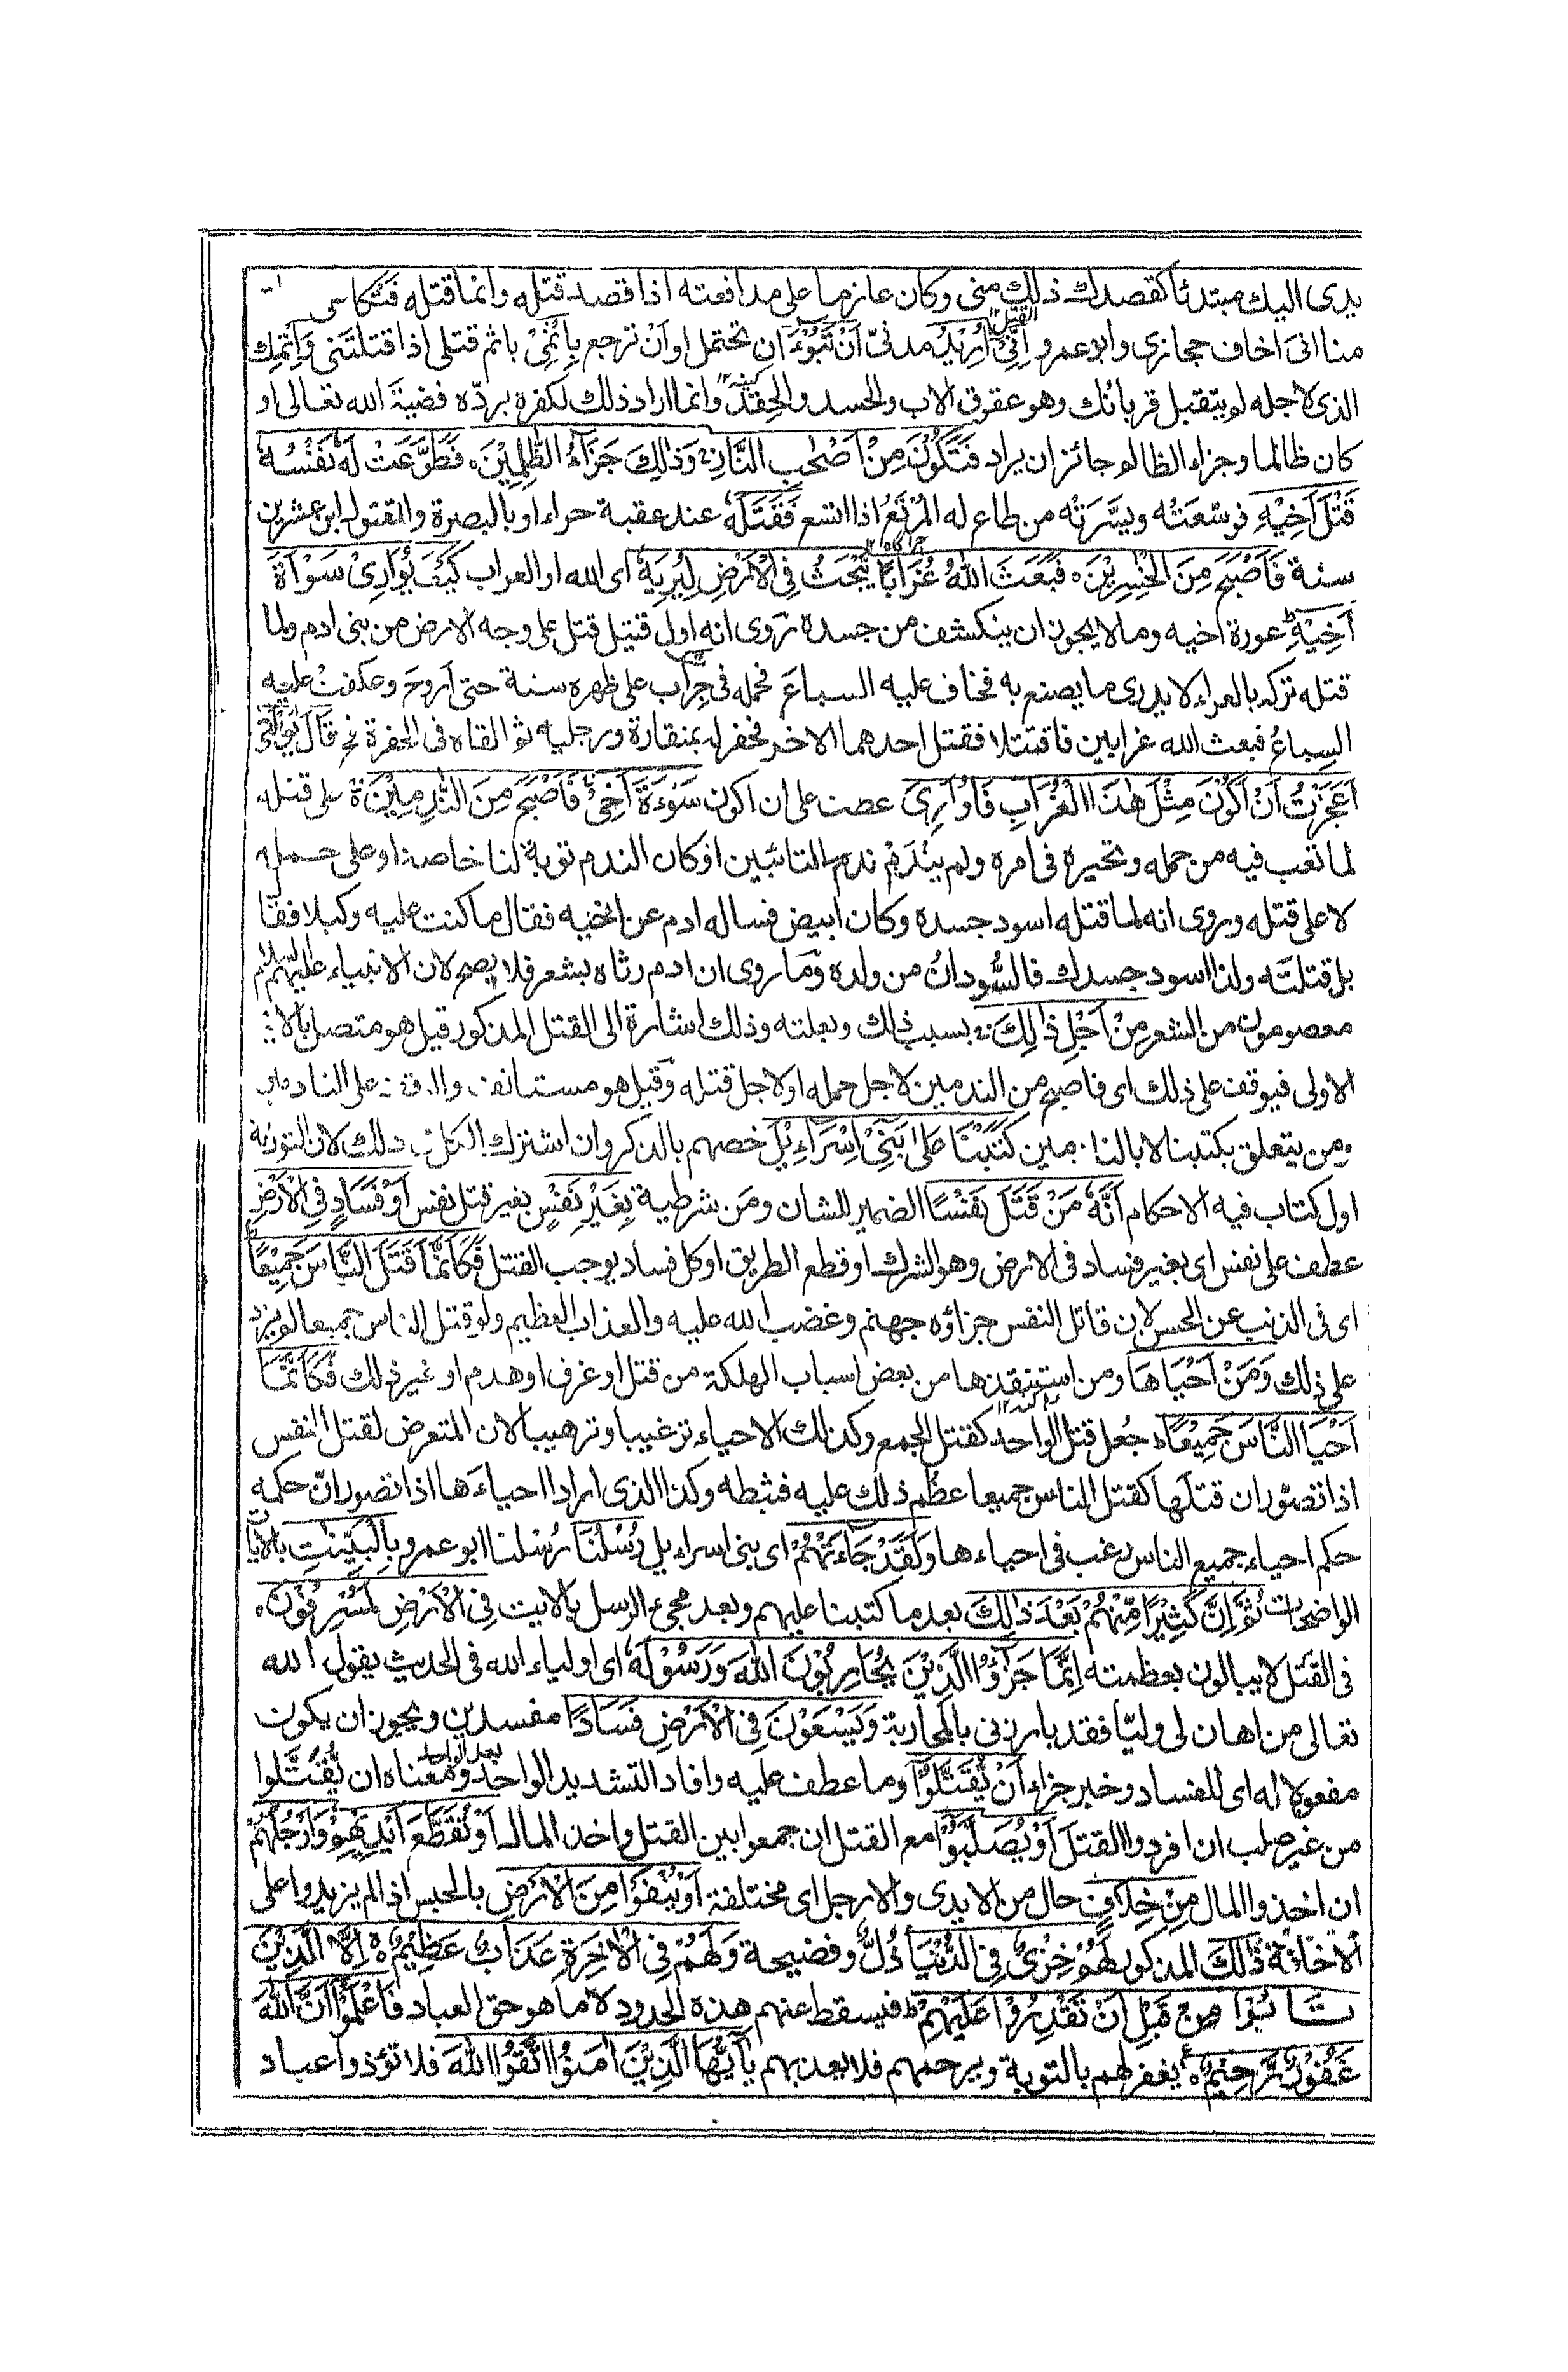 يدى اليك مبتدئا كقصدك ذلك منى وكان عازما على مدافعته اذا قصد قتله وانما قتله فتكا
منا انى اخاف حجازى وابو عمرو اِنِّىْٓ اُرِيْدُ مدنىّ اَنْ تَبُوْٓءَ ان تحتمل او اَنْ ترجع بِاِثْمِىْ باثم قتلى اذا قتلتنى وَاِثْمِكَ
الذى لاجله لم يتقبل قربانك وهو عقوق الاب والحسد والحِقْدُ وانما اراد ذلك لكفره بردّه قضيةَ الله تعالى او
كان ظالما وجزاء الظالم جائز ان يراد فَتَكُوْنَ مِنْ اَصْحٰبِ النَّارِ وَذٰلِكَ جَزٰٓؤُا الظّٰلِمِيْنَ فَطَوَّعَتْ لَهٗ نَفْسُهٗ
قَتْلَ اَخِيْهِ فوسّعَتْه ويسَّرَتْه من طاع له المُرْتَعُ اذا اتسع فَقَتَلَهٗ عند عقبة حراء او بالبصرة والمقتول ابن عشرين
سنة فَاَصْبَحَ مِنَ الْخٰسِرِيْنَ فَبَعَثَ اللّٰهُ غُرَابًا يَّبْحَثُ فِى الْاَرْضِ لِيُرِيَهٗ اى الله او الغراب كَيْفَ يُوَارِىْ سَوْاَةَ
اَخِيْهِ عورة اخيه وما لا يجوز ان ينكشف من جسده رُوى انه اول قتيل قتل على وجه الارض من بنى ادم ولما
قتله تركه بالعراء لا يدرى ما يصنع به فخاف عليه السباعَ فحمله فى جِراب على ظهره سنة حتى اَروحَ وعكفتْ عليه
السباعُ فبعث الله غرابين فاقتتلا فقتل احدهما الاخر فحفر له بمنقاره ورجليه ثم القاه فى الحفرة قَالَ يٰوَيْلَتٰٓى
اَعَجَزْتُ اَنْ اَكُوْنَ مِثْلَ هٰذَا الْغُرَابِ فَاُوَارِىَ عطف على ان اكون سَوْءَةَ اَخِىْ فَاَصْبَحَ مِنَ النّٰدِمِيْنَ على قتله
لما تعب فيه من حمله وتحيره فى امره ولم يندم ندم التائبين او كان الندم توبة لنا خاصة او على حمله
لا على قتله وروى انه لما قتله اسود جسده وكان ابيض فساله ادم عن اخيه فقال ما كنت عليه وكيلا فقا
بل قتلتَه ولذا اسود جسدك فالسُّودان من ولده وما روى ان ادم رثاه بشعر فلا يصح لان الانبياء عليهم السلام
معصومون من الشعر مِنْ اَجْلِ ذٰلِكَ بسبب ذلك وبعلته وذلك اشارة الى القتل المذكور قيل هو متصل بالاٰ
الاولى فيوقف على ذلك اى فاصبح من الندمين لاجل حمله او لاجل قتله وقيل هو مستانف والوقف على النادمين
ومِن يتعلق بكتبنا لا بالنادمين كَتَبْنَا عَلٰى بَنِىْٓ اِسْرَآءِيْلَ خصهم بالذكر وان اشترك الكل فى ذلك لان التورٰية
اول كتاب فيه الاحكام اَنَّهٗ مَنْ قَتَلَ نَفْسًا الضمير للشان ومَن شرطية بِغَيْرِ نَفْسٍ بغير قتل نفس اَوْ فَسَادٍ فِى الْاَرْضِ
عطف على نفس اى بغير فساد فى الارض وهو الشرك او قطع الطريق او كل فساد يوجب القتل فَكَاَنَّمَا قَتَلَ النَّاسَ جَمِيْعًا
اى فى الذنب عن الحسن لان قاتل النفس جزاؤه جهنم وغضب الله عليه والعذاب العظيم ولو قتل الناس جميعا لم يزد
على ذلك وَمَنْ اَحْيَاهَا ومن استنقذها من بعض اسباب الهلكة من قتل او غرق او هدم او غير ذلك فَكَاَنَّمَآ
اَحْيَا النَّاسَ جَمِيْعًا جُعل قتل الواحد كقتل الجمع وكذلك الاحياء ترغيبا وترهيبا لان المتعرض لقتل النفس
اذا تصوّر ان قتلها كقتل الناس جميعا عظُم ذلك عليه فثبطه وكذا الذى اراد احياءها اذا تصور انّ حكمه
حكم احياء جميع الناس رغب فى احياءها وَلَقَدْ جَآءَتْهُمْ اى بنى اسراءيل رُسُلُنَا رُسْلنا ابو عمرو بِالْبَيِّنٰتِ بالاٰيات
الواضحات ثُمَّ اِنَّ كَثِيْرًا مِّنْهُمْ بَعْدَ ذٰلِكَ بعد ما كتبنا عليهم وبعد مجىء الرسل بالايت فِى الْاَرْضِ لَمُسْرِفُوْنَ
فى القتل لا يبالون بعظمته اِنَّمَا جَزٰٓؤُا الَّذِيْنَ يُحَارِبُوْنَ اللّٰهَ وَرَسُوْلَهٗ اى اولياء الله فى الحديث يقول الله
تعالى من اهان لى وليّا فقد بارزنى بالمحاربة وَيَسْعَوْنَ فِى الْاَرْضِ فَسَادًا مفسدين ويجوز ان يكون
مفعولا له اى للفساد وخبر جزاء اَنْ يُّقَتَّلُوْٓا وما عطف عليه وافاد التشديد الواحد بعد الواحد ومعناه ان يُّقَتَّلوا
من غير صلب ان افردوا القتل اَوْ يُصَلَّبُوْٓا مع القتل ان جمعوا بين القتل واخذ المال اَوْ تُقَطَّعَ اَيْدِيْهِمْ وَاَرْجُلُهُمْ
ان اخذوا المال مِنْ خِلَافٍ حال من الايدى والارجل اى مختلفة اَوْ يُنْفَوْا مِنَ الْاَرْضِ بالحبس اذا لم يزيدوا على
الاخافة ذٰلِكَ المذكور لَهُمْ خِزْىٌ فِى الدُّنْيَا ذُلٌّ وفضيحة وَلَهُمْ فِى الْاٰخِرَةِ عَذَابٌ عَظِيْمٌ اِلَّا الَّذِيْنَ
تَابُوْا مِنْ قَبْلِ اَنْ تَقْدِرُوْا عَلَيْهِمْ فيسقط عنهم هذه الحدود لا ما هو حق العباد فَاعْلَمُوْٓا اَنَّ اللّٰهَ
غَفُوْرٌ رَّحِيْمٌ يغفر لهم بالتوبة ويرحمهم فلا يعذبهم يٰٓاَيُّهَا الَّذِيْنَ اٰمَنُوا اتَّقُوا اللّٰهَ فلا تؤذوا عباد